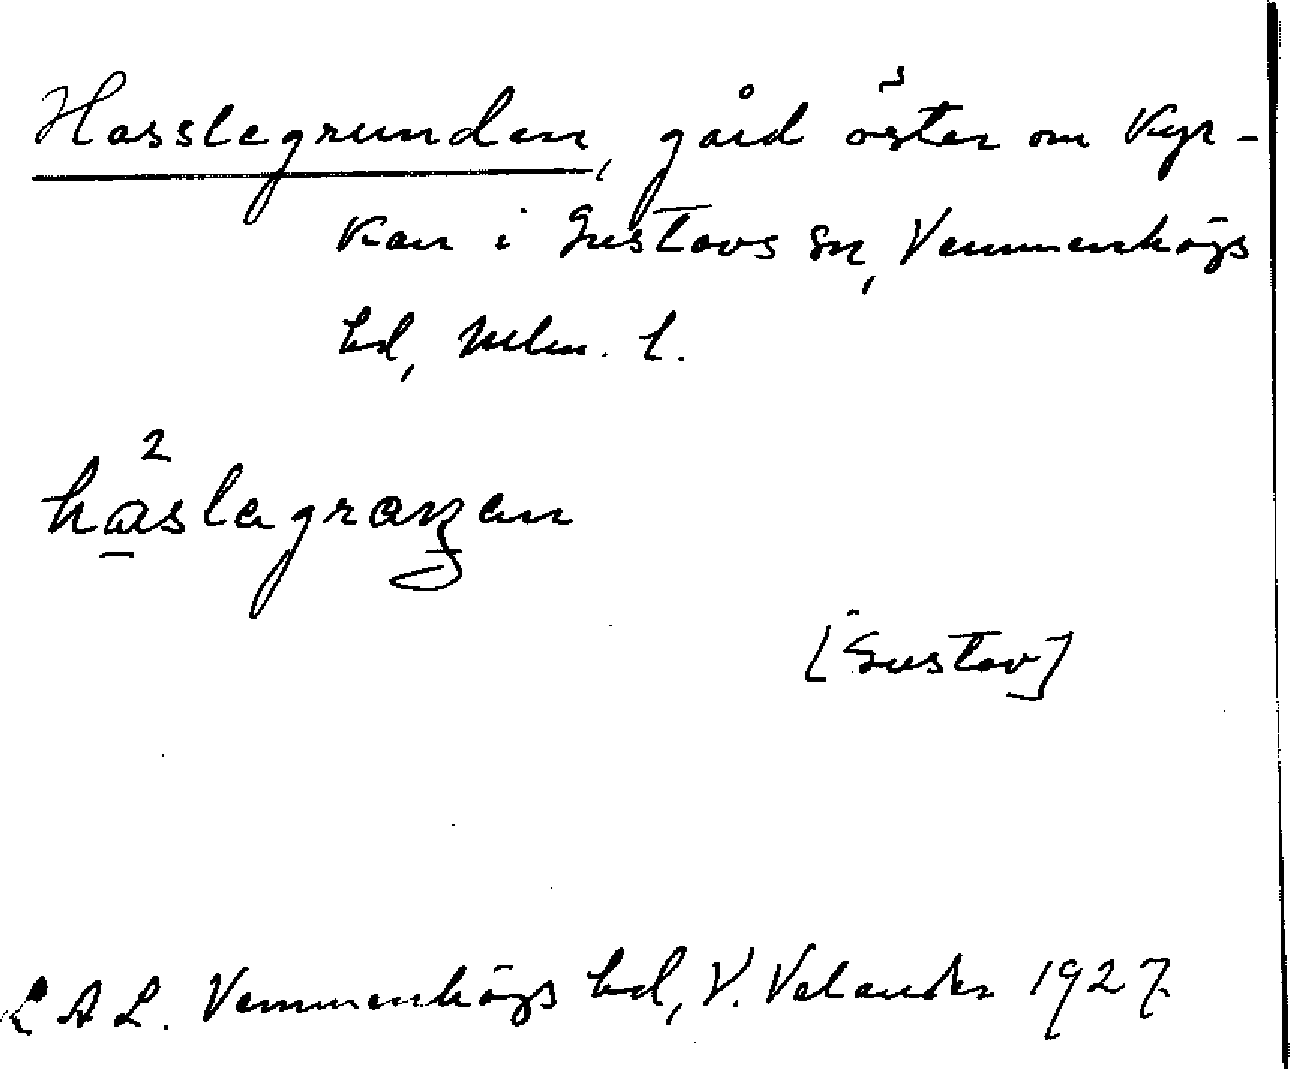 Hasslegrunden, gård öster om kyr-
kan i Gustavs sn, Vemmenhögs
hd, Mlm. l.
[Gustav]
L A L. Vemmenhögs hd, V. Velander 1927.